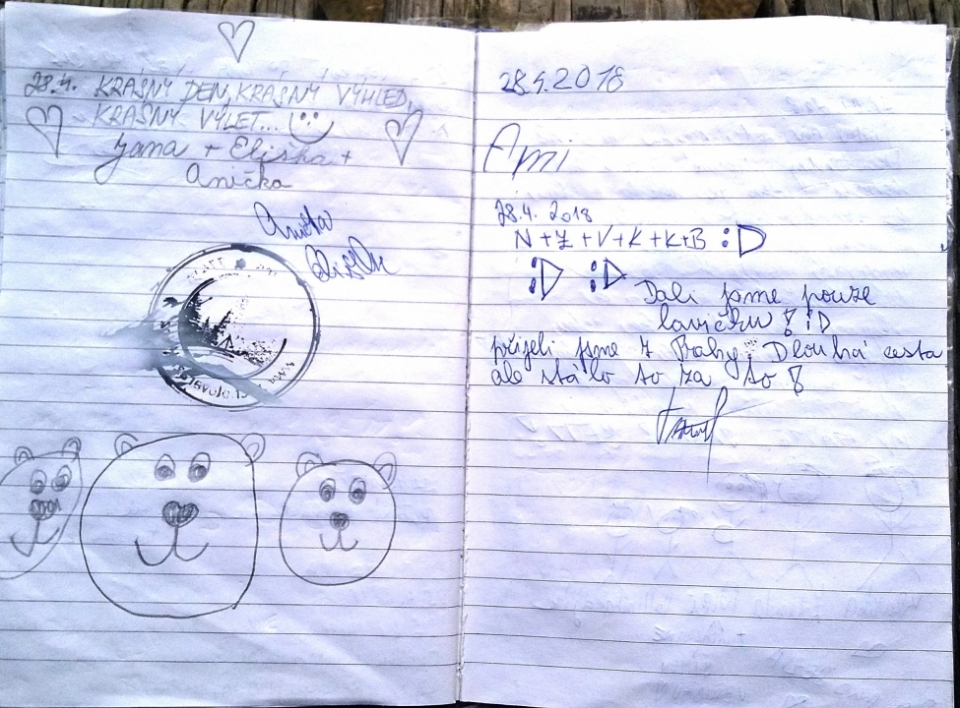 28.4. KRÁSNÝ DEN, KRÁSNÝ VÝHLED,
KRÁSNÝ VÝLET...
Jana + Eliška +
Anička
28.4.2018
Ami
28.4. 2018
N + Z + V + K + K + B :D
:D :D
Dali jsme pouze
lavičku! :D
přijeli jsme z Prahy. Dlouhá cesta
ale stálo to za to!